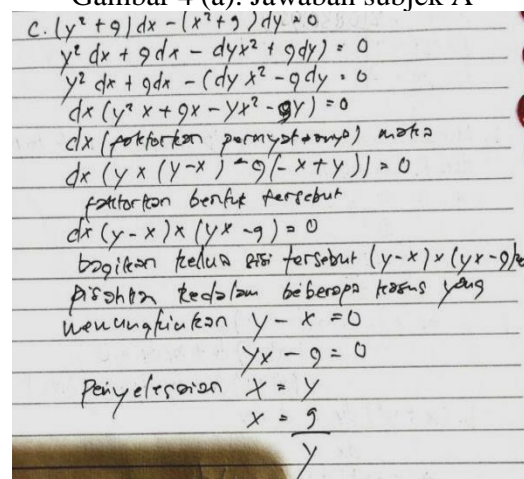 Gambar 4 (a). Jawaban subjek A
c. (y² + 9) dx - (x² + 9) dy = 0
y² dx + 9dx - dyx² + 9dy) = 0
y² dx + 9dx - (dy x² - 9dy = 0
dx (y² x + 9x - yx² - 9y) = 0
dx (faktorkan pernyataannya) maka
dx (yx (y-x) - 9(-x + y)) = 0
faktorkan bentuk tersebut
dx (y - x) x (yx - 9) = 0
bagikan kedua sisi tersebut (y-x) x (yx-9)=
pisahkan kedalam beberapa kasus yang
memungkinkan y - x = 0
yx - 9 = 0
Penyelesaian x = y
x = 9
y